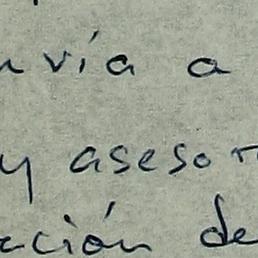 vía a
y aseso
ación de